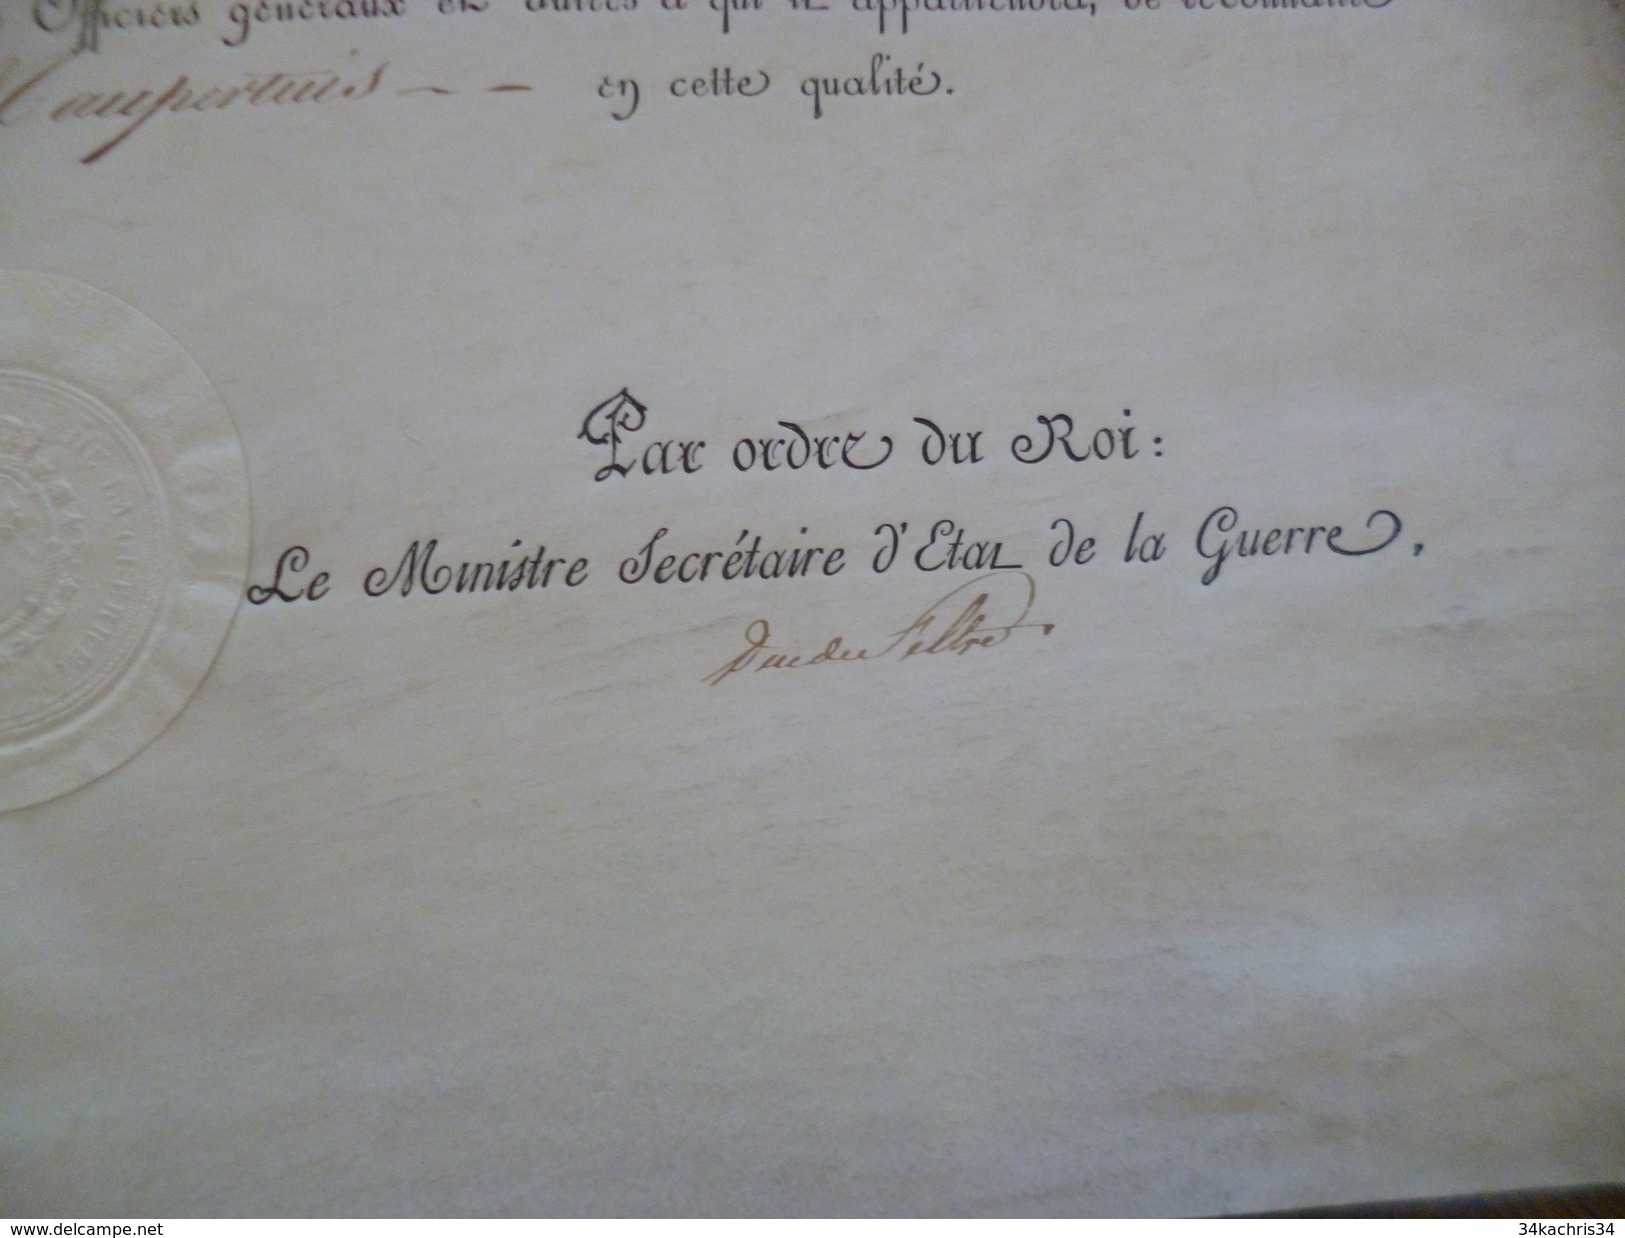 Officiers généraux et autres à qui il appartiendra, de reconnaître
Maupertuis — — en cette qualité.
Par ordre du Roi :
Le Ministre Secrétaire d'Etat de la Guerre,
Duc de Feltre
www.delcampe.net
34kachris34